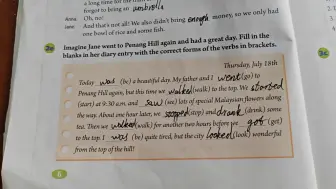 a long time for the train
forget to bring an umbrella
Anna Oh, no!
Jane And that's not all! We also didn't bring enough money, so we only had
one bowl of rice and some fish.
2e Imagine Jane went to Penang Hill again and had a great day. Fill in the
blanks in her diary entry with the correct forms of the verbs in brackets.
Thursday, July 18th
Today was (be) a beautiful day. My father and I went (go) to
Penang Hill again, but this time we walked (walk) to the top. We
(start) at 9:30 a.m. and saw (see) lots of special Malaysian flowers along
the way. About one hour later, we stopped (stop) and drank (drink) some
tea. Then we walked (walk) for another two hours before we got (get)
to the top. I was (be) quite tired, but the city looked (look) wonderful
from the top of the hill!
6